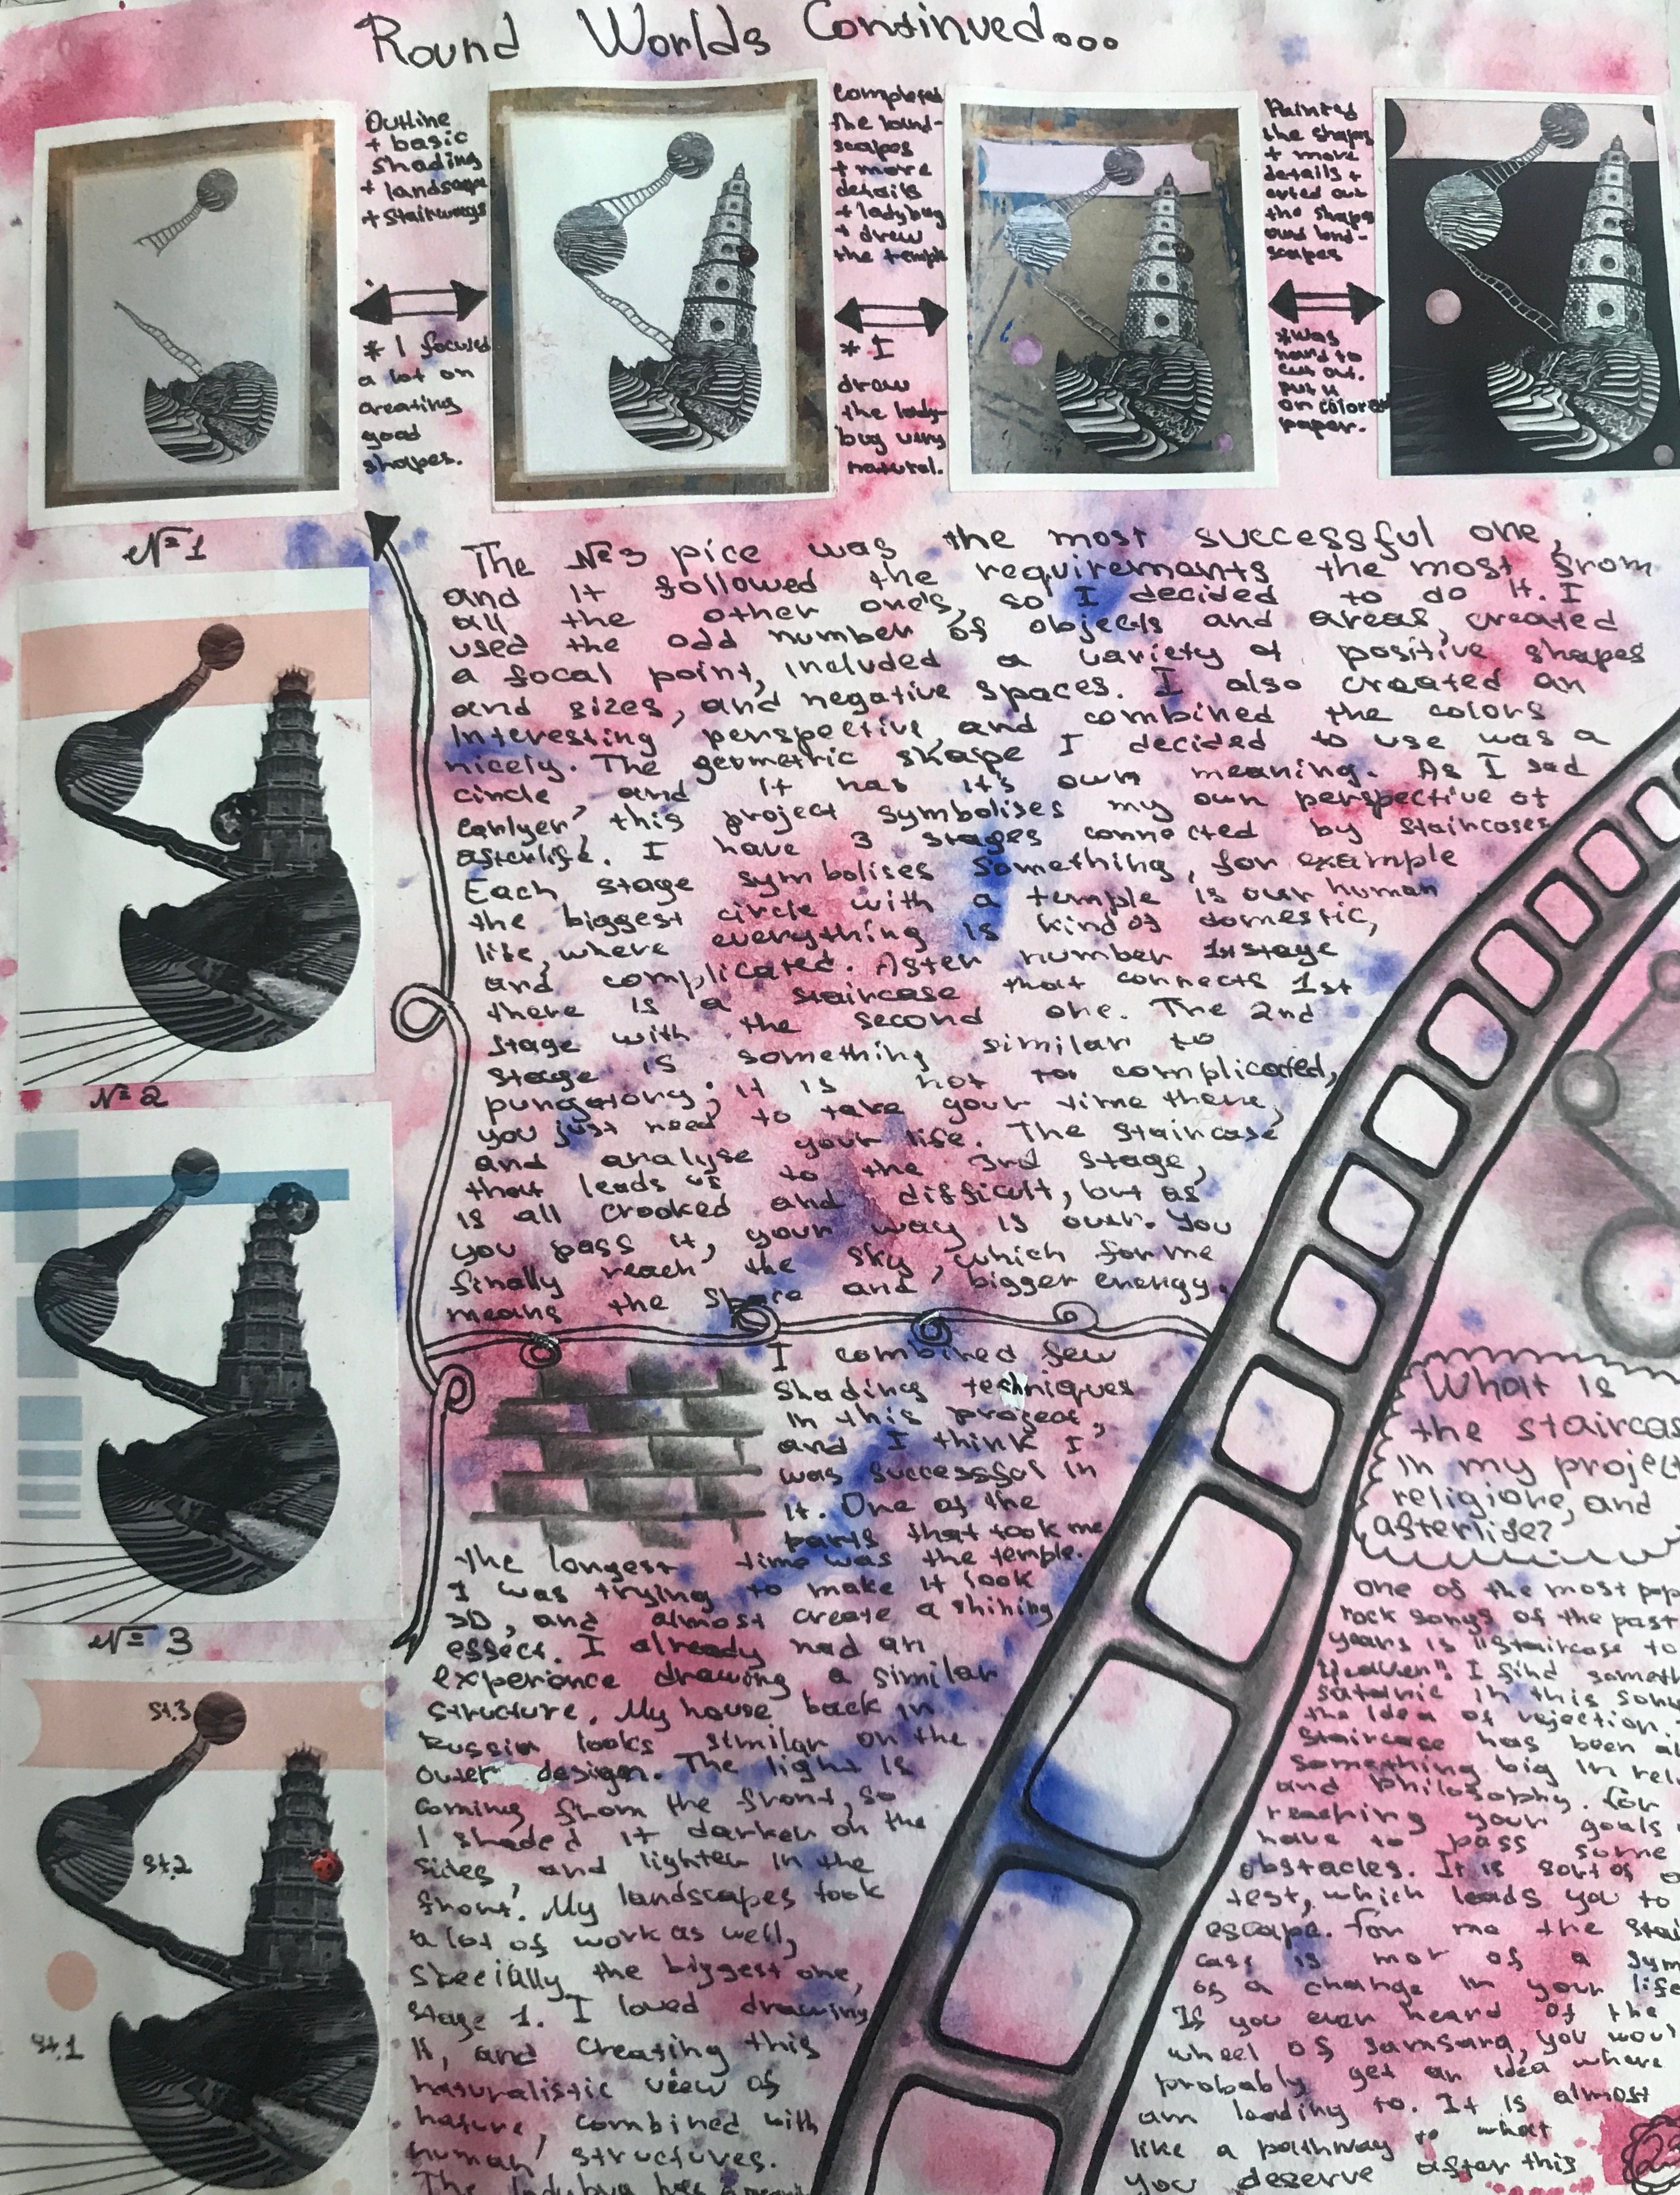 Round Worlds Continued...
Outline
+ basic
shading
+ landscape
+ stairways
* I focused
a lot on
creating
good
shapes.
Completed
the land-
scapes
+ more
details
+ ladybug
+ drew
the temple
* I
draw
the lady-
bug very
natural.
Painted
the shapes
+ more
details +
cuted out
the shapes
and land-
scapes
*was
hard to
cut out.
put it
on colored
paper.
№1
№2
№3
st.3
st.2
st.1
The №3 pice was the most successful one,
and it followed the requirements the most from
all the other one's, so I decided to do it. I
used the odd number of objects and areas, created
a focal point, included a variety of positive shapes
and sizes, and negative spaces. I also created an
interesting perspective and combined the colors
nicely. The geometric shape I decided to use was a
circle and it has it's own meaning. As I sad
earlyer, this project symbolises my own perspective of
afterlife. I have 3 stages connected by staircases
Each stage symbolises something, for example
the biggest circle with a temple is our human
life, where everything is kind of domestic,
and complicated. After number 1st stage
there is a staircase that connects 1st
stage with the second one. The 2nd
stage is something similar to
pungatory; it is not to complicated,
you just need to take your time there,
and analyse your life. The staircase
that leads us to the 3rd stage,
is all crooked and difficult, but as
you pass it, your way is over. You
finally reach the sky, which for me
means the and bigger energy.
I combined few
shading techniques
in this project,
and I think I
was successful in
it. One of the
parts that took me
the longest time was the temple.
I was trying to make it look
3D, and almost create a shining
effect. I already had an
experience drawing a similar
structure. My house back in
Russia looks similar on the
outer design. The light is
coming from the front, so
I shaded it darker on the
sides, and lighter in the
front. My landscapes took
a lot of work as well,
specially the biggest one,
stage 1. I loved drawing
it, and creating this
naturalistic view of
nature, combined with
human structures.
The ladybug has a
What is
the staircas
in my project
religione, and
afterlife?
One of the most pop
rock songs of the past
years is "Staircase to
Heaven". I find someth
satanic in this son
the idea of rejection.
Staircase has been al
something big in rel
and philosophy. for
reaching your goals
have to pass some
obstacles. It is sort of
test, which leads you to
escape. for me the stai
case is mor of a sym
of a change in your life
If you ever heard of the
wheel of samsara, you woul
probably get an idea where
am leading to. It is almost
like a pathway to what
you deserve after this